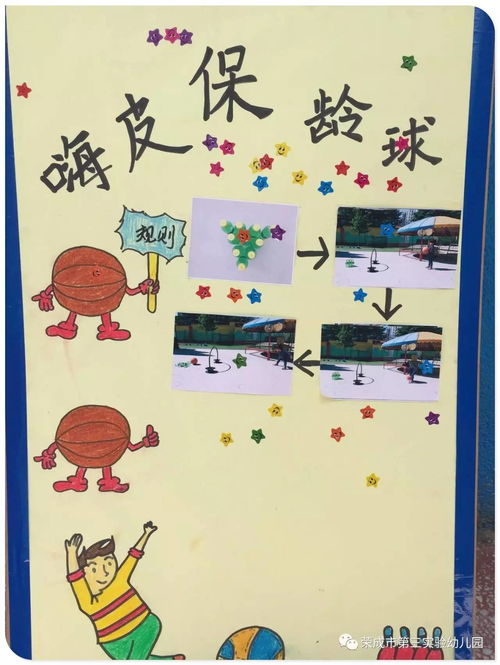 嗨皮保龄球
规则
荣成市第三实验幼儿园